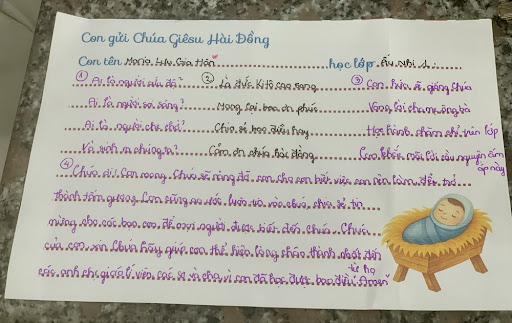 Con gửi Chúa Giêsu Hài Đồng
Con tên Maria Lưu Gia Hân học lớp Ấu Nhi 1
① Ai là người ... đó? ② Là đức Kitô cao sang ③ Con hứa sẽ giống Chúa
Ai là người soi sáng? Mang lại bao ơn phúc Vâng lời cha mẹ ông bà
Ai là người che chở? Chia sẻ bao điều hay Học hành chăm chỉ trên lớp
Và sinh ra chúng ta? Cảm ơn chúa hài đồng Con khắc mãi lời cầu nguyện ấm áp này
④ Chúa ơi! Con mong Chúa sẽ rằng đã con cho con biết việc con nên làm để trở
thành tấm gương. Con cũng mơ ước luôn và nước chúa, chia sẻ tin
mừng cho các bạn con để mọi người được biết đến chúa. Chúa
của con, xin Chúa hãy giúp con thể hiện lòng chân thành nhất đến
các anh chị giáo lý viên, các sơ và cha vì con đã học được bao điều từ họ Amen